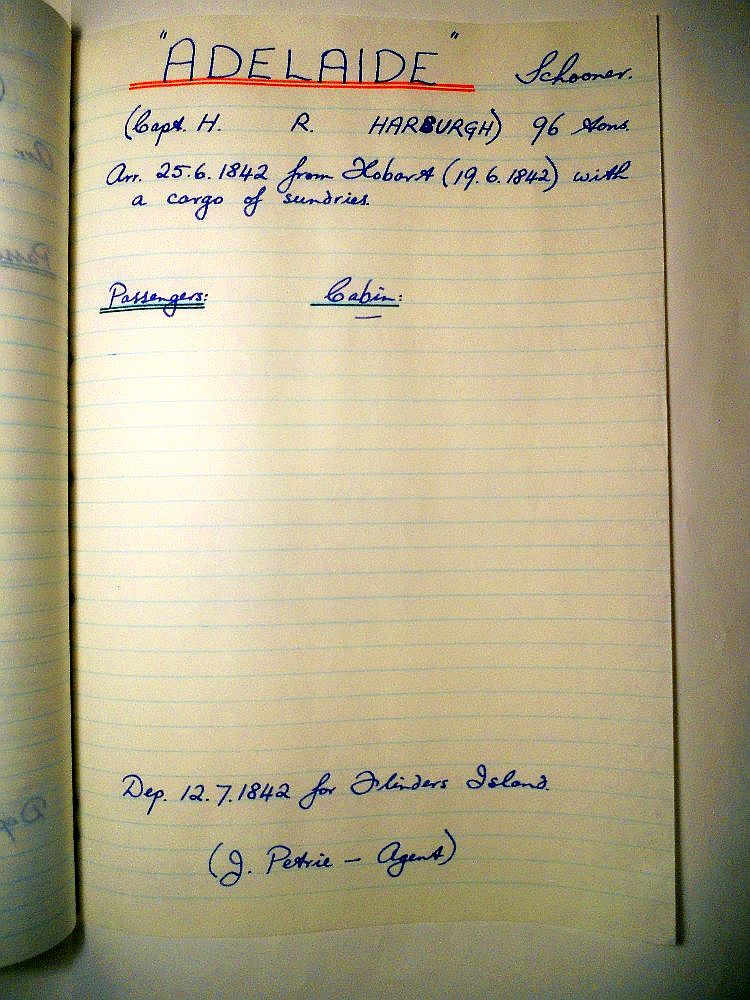 "ADELAIDE" Schooner.
(Capt. H. R. HARBURGH) 96 tons.
Arr. 25.6.1842 from Hobart (19.6.1842) with
a cargo of sundries.
Passengers: Cabin:
Dep. 12.7.1842 for Flinders Island.
(J. Petrie – Agent)